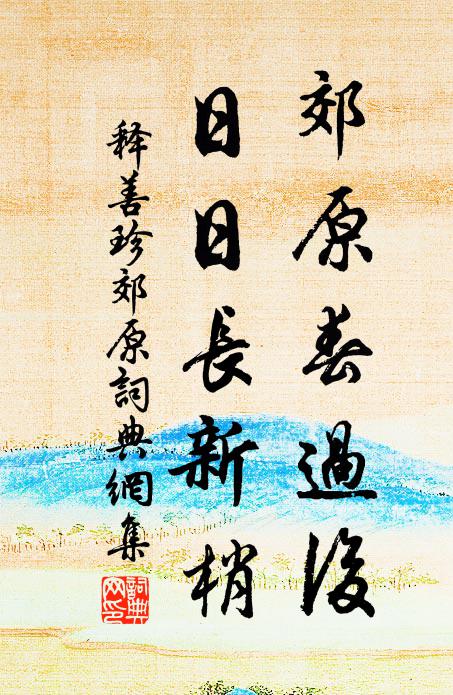 郊原春過後
日日長新梢
释善珍郊原詞典網集
詞典